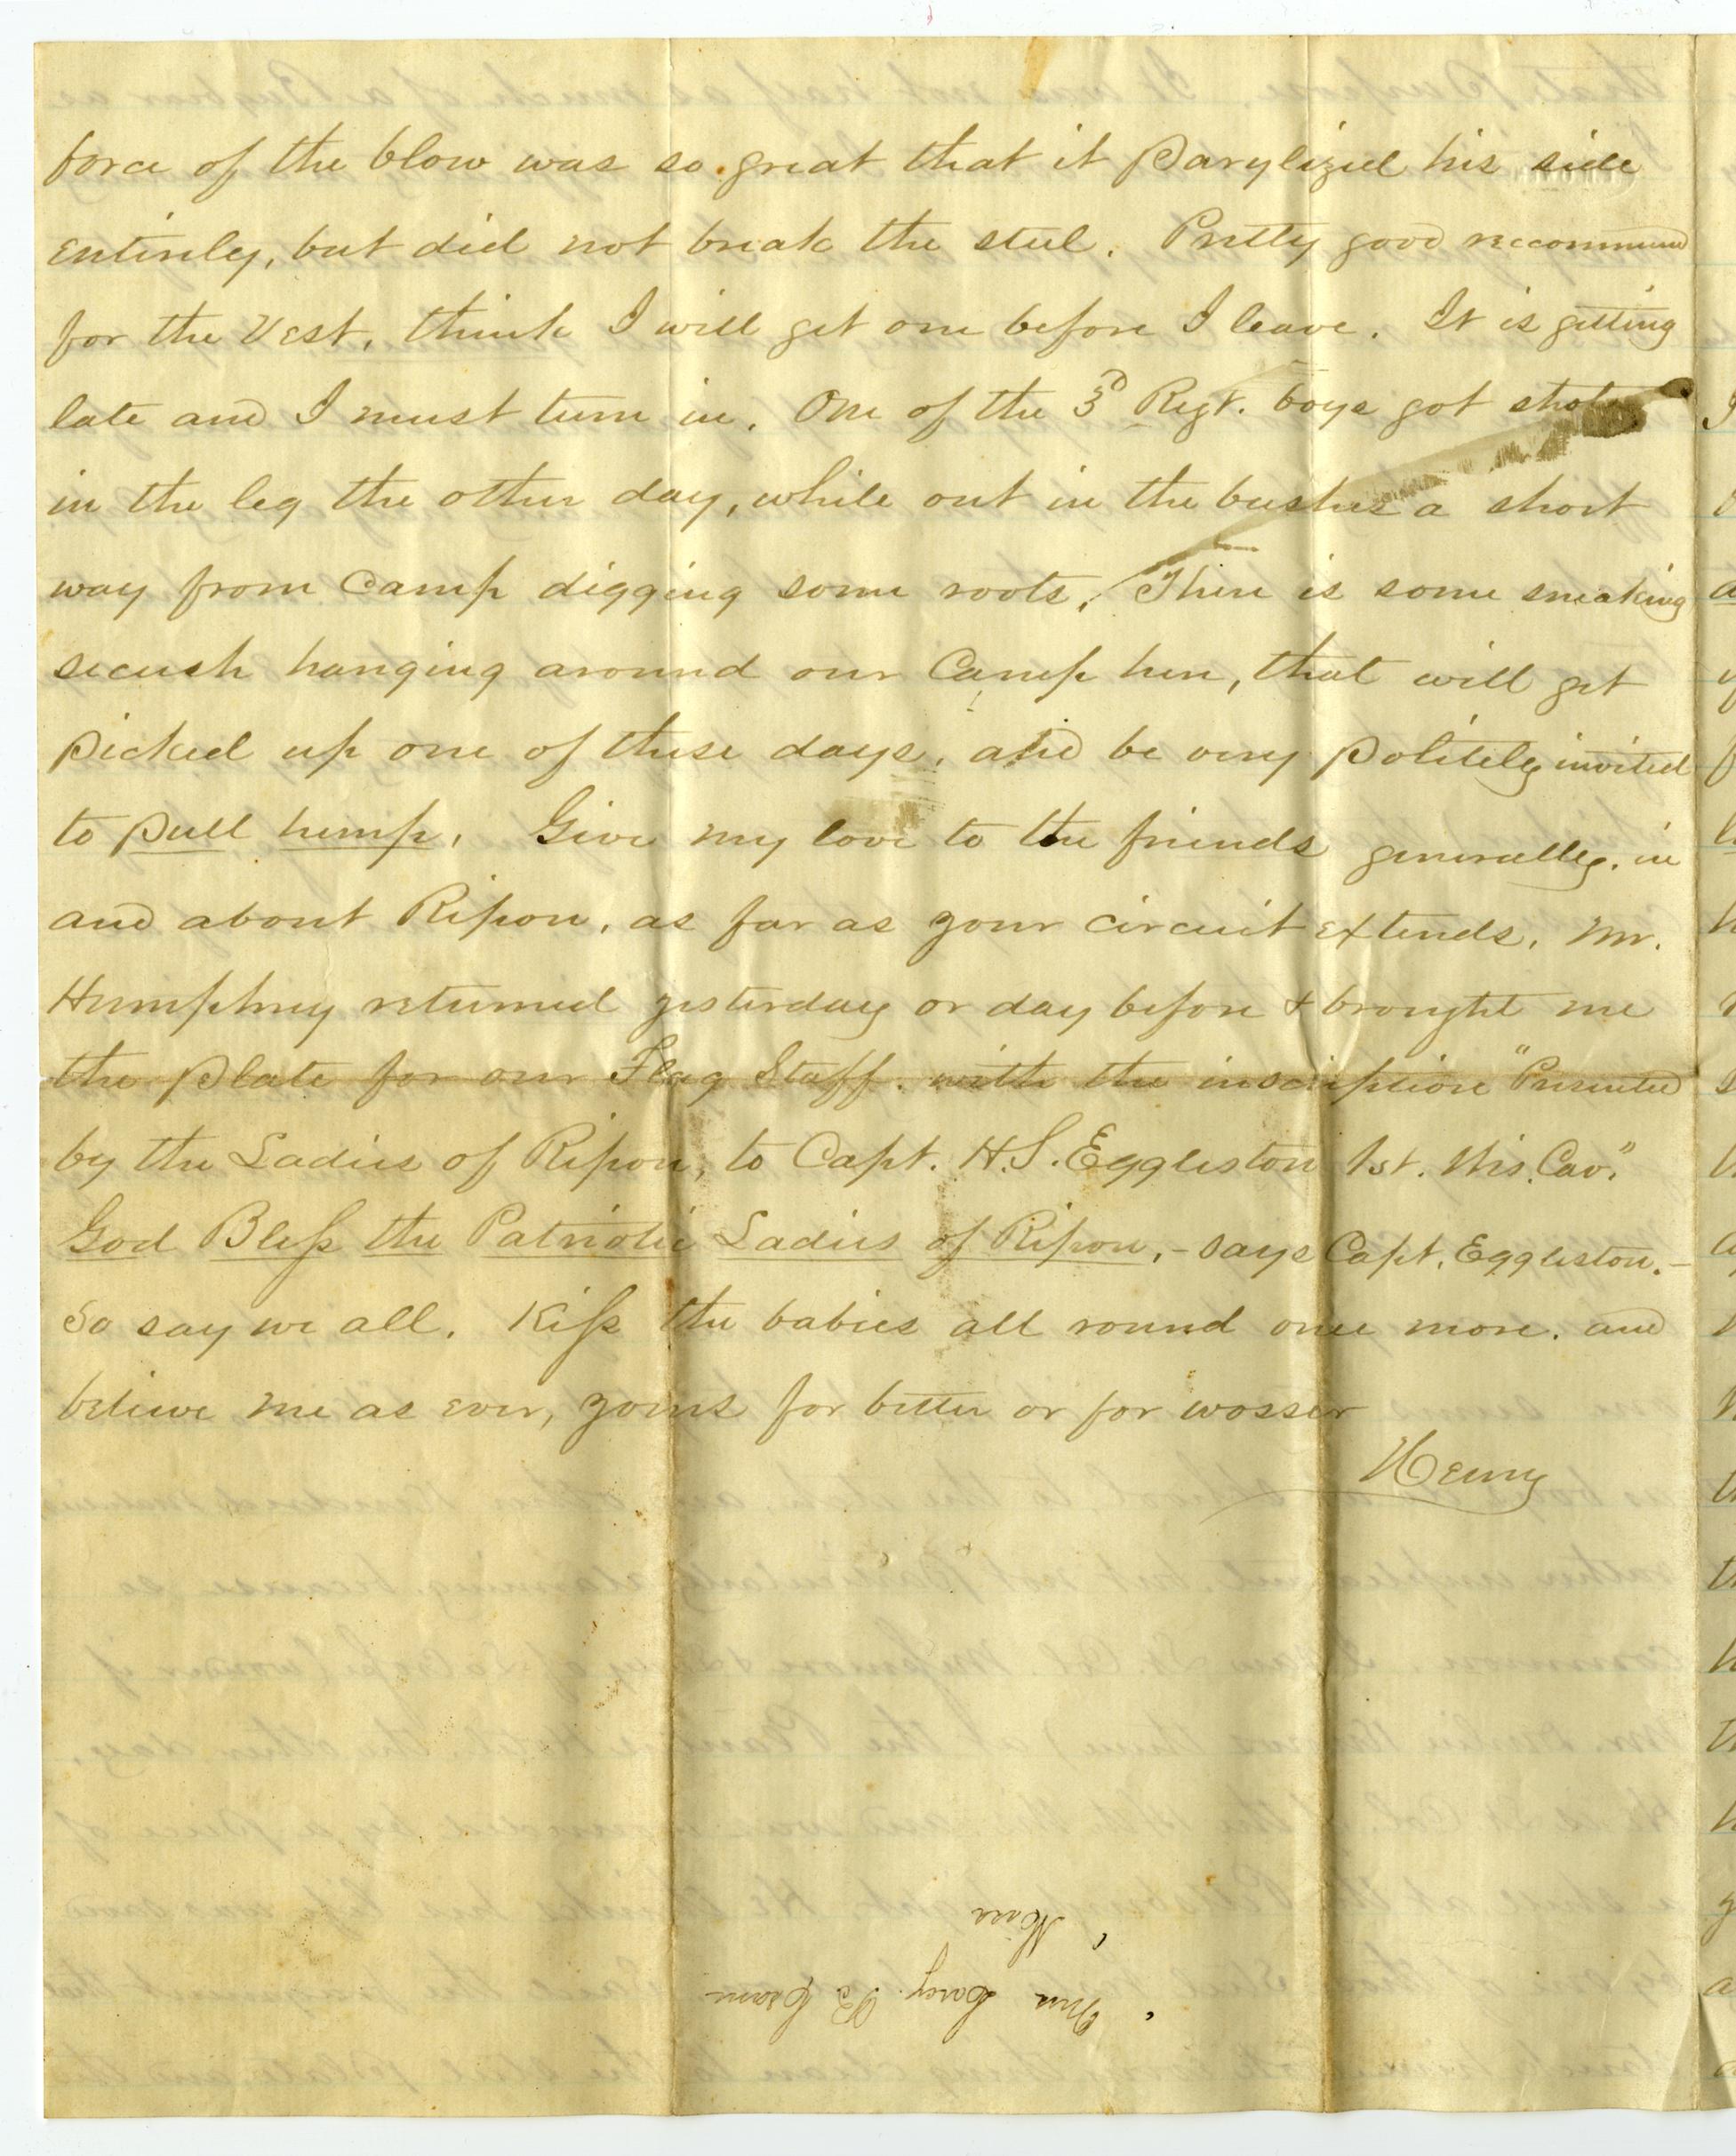 force of the blow was so great that it Parylized his side
entirely, but did not break the steel. Pretty good recommend
for the Vest, think I will get one before I leave. It is getting
late and I must turn in. One of the 3D Regt. boys got shot
in the leg the other day, while out in the bushes a short
way from Camp digging some roots. There is some sneaking
secush hanging around our Camp here, that will get
Picked up one of these days, and be very Politely invited
to Pull hemp. Give my love to the friends generally, in
and about Ripon, as far as your circuit extends. Mr.
Humphrey returned yesterday or day before & brought me
the Plate for our Flag Staff. with the inscription "Presented
by the Ladies of Ripon, to Capt. H.S. Eggleston 1st. Wis. Cav."
God Bless the Patriotic Ladies of Ripon, - says Capt. Eggleston. -
So say we all. Kiss the babies all round once more. and
believe me as ever, yours for better or for wosser
Henry
Mrs Lucy